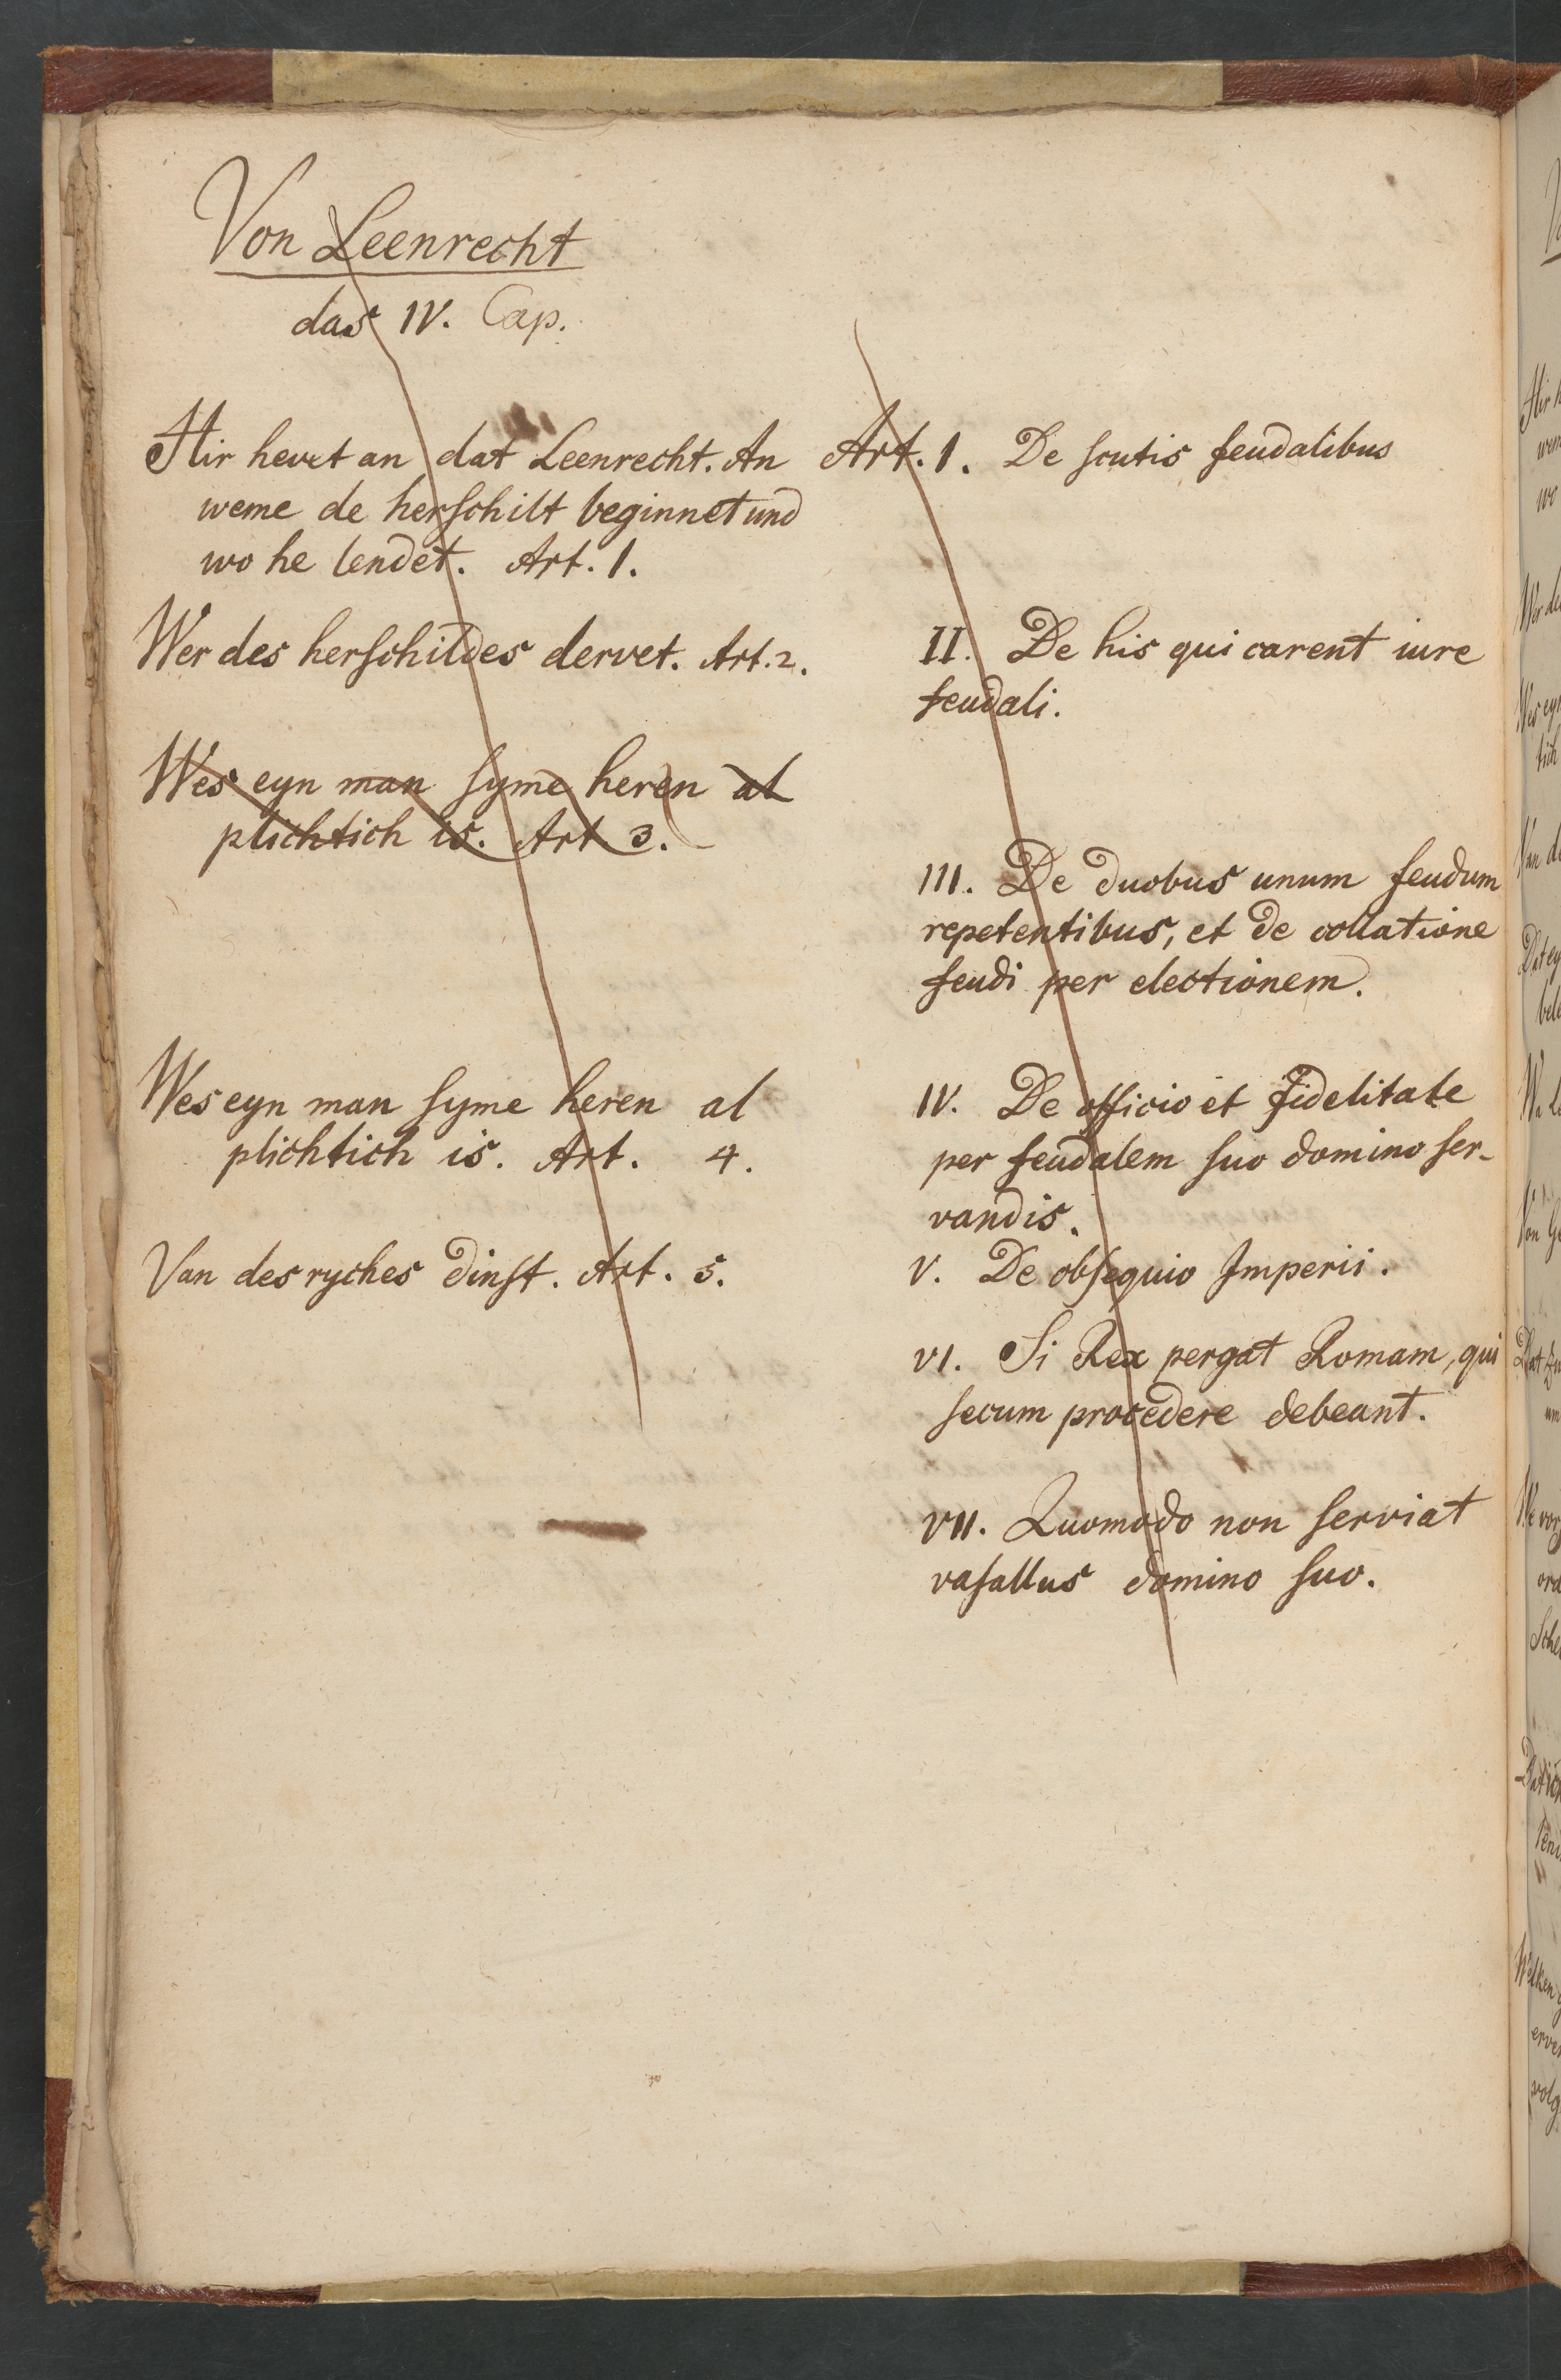 Von Leenrecht
das IV. Cap.
Hir hevet an dat Leenrecht. An
weme de herschilt beginnet und
wo he lendet. Art. 1.
Wer des herschildes dervet. Art. 2.
Wes eyn man syme heren al
plichtich is. Art 3.
Wes eyn man syme heren al
plichtich is. Art. 4.
Van des ryches dinst. Art. 5.
Art. 1. De scutis feudalibus
II. De his qui carent iure
feudali.
III. De duobus unum feudum
repetentibus, et de collatione
feudi per electionem.
IV. De officio et fidelitate
per feudalem suo domino ser-
vandis.
V. De obsequio Imperii.
VI. Si Rex pergat Romam, qui
secum procedere debeant.
VII. Quomodo non serviat
vasallus domino suo.